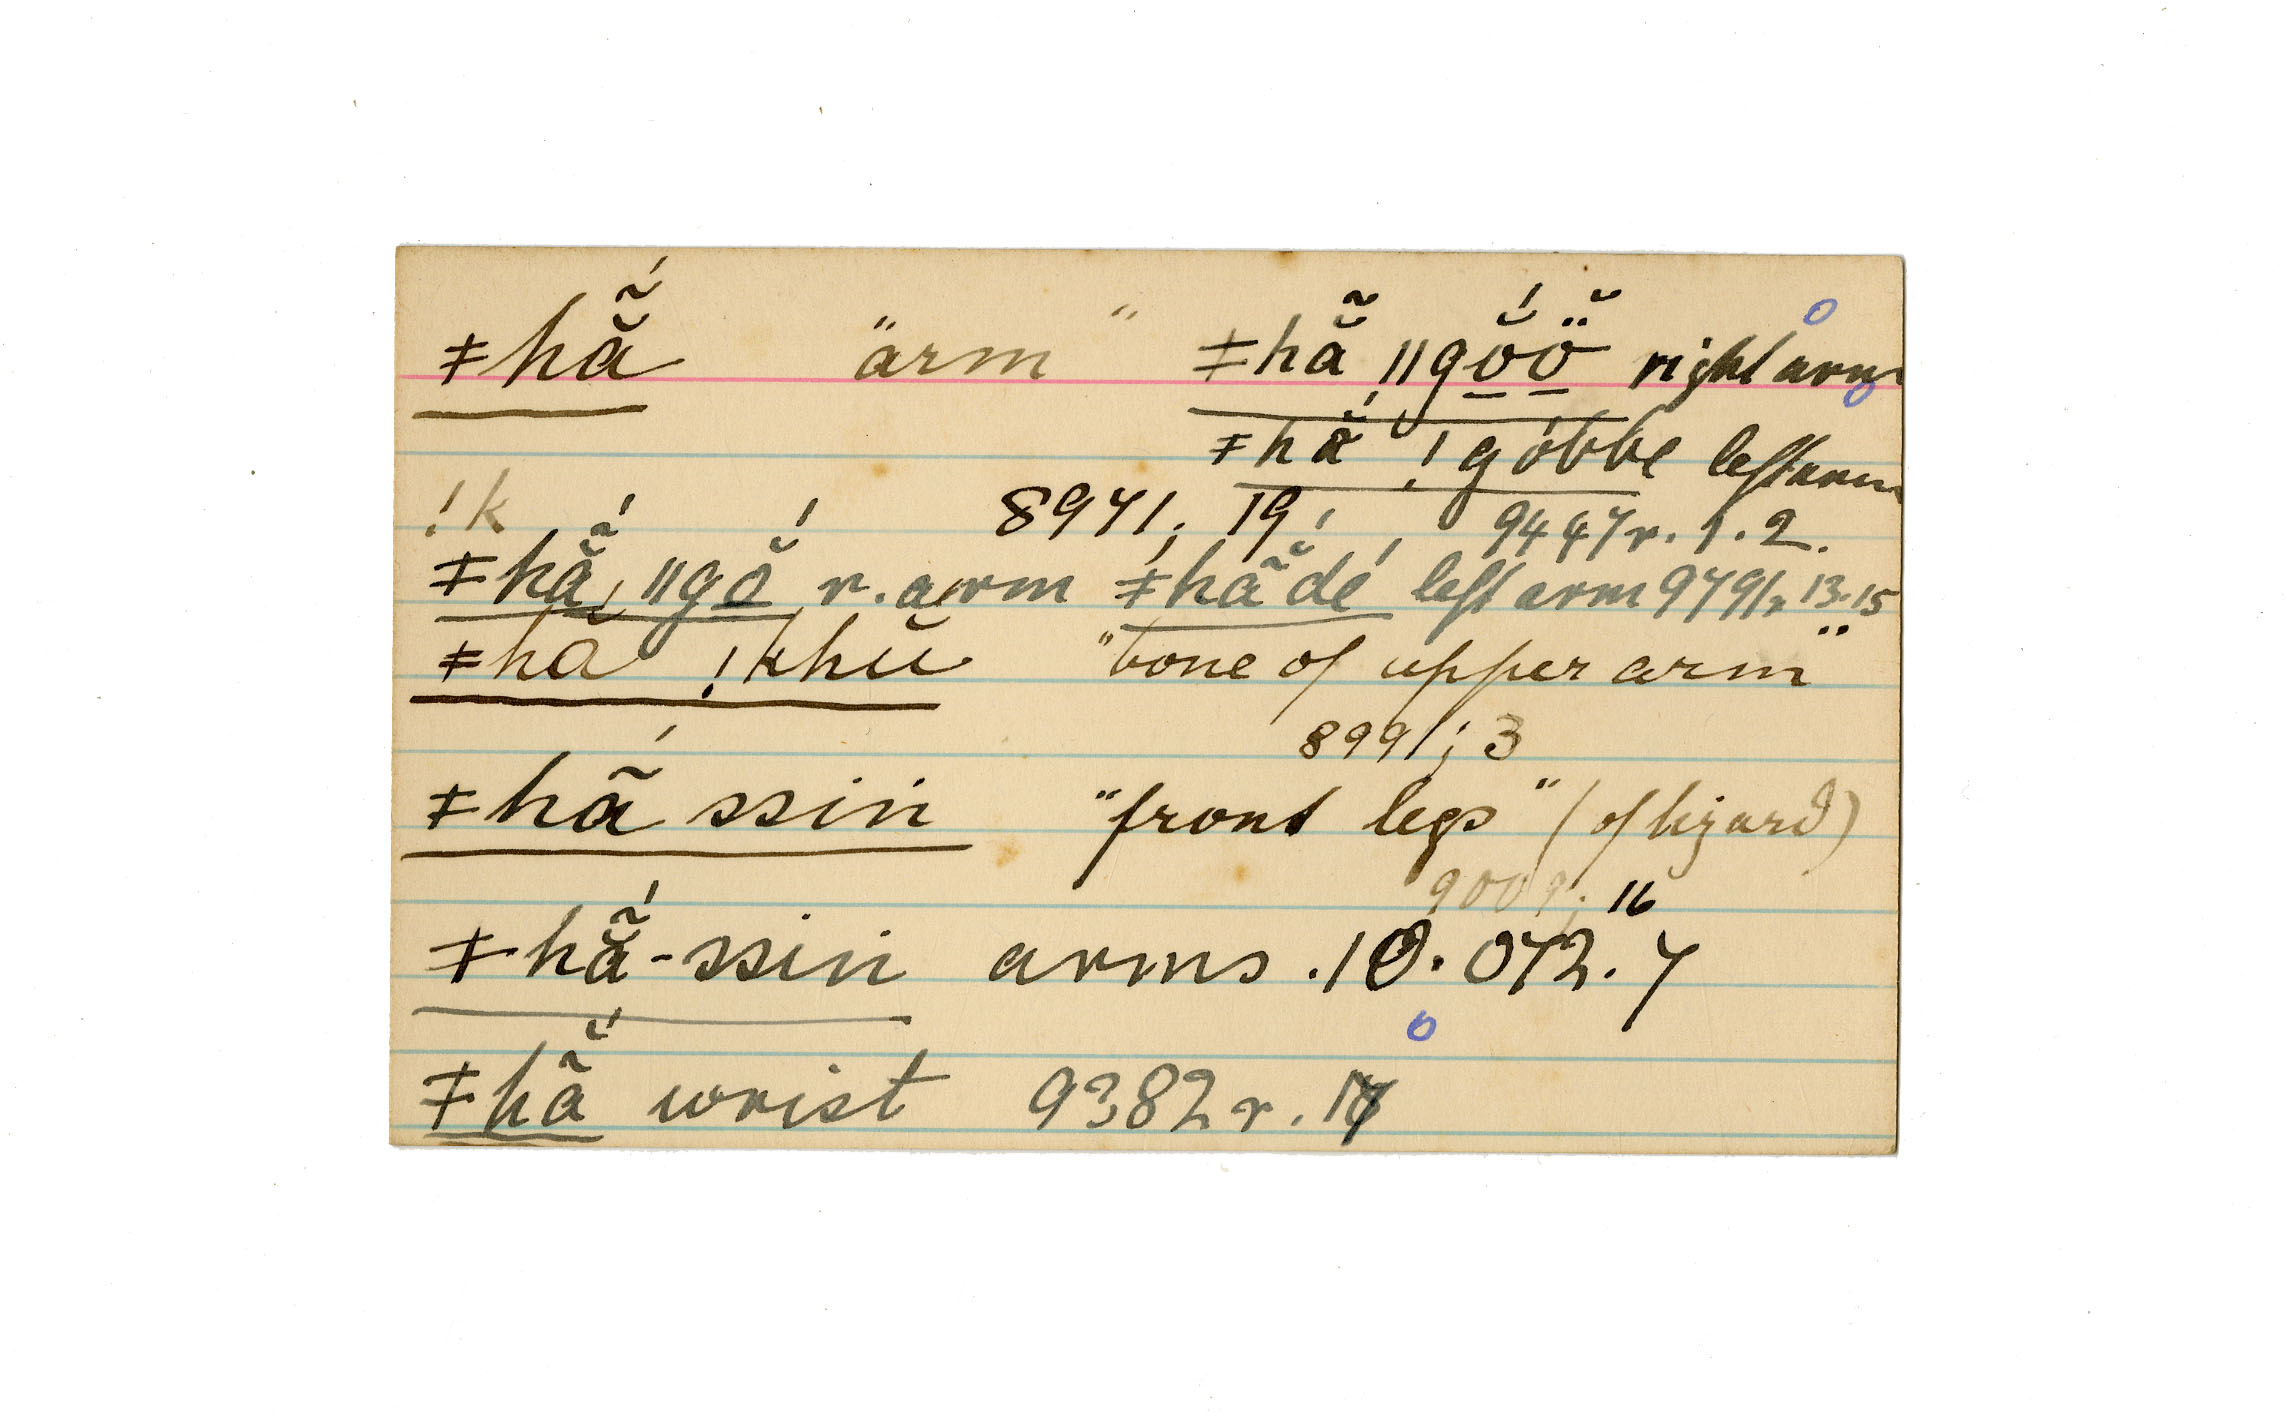 ǂhã̆́ "arm" ǂhã̆ ǁgŏ́ŏ̈ right arm
ǂhã̆́ ǃgóbbe left arm
ǃk 8971; 19 9447r. 1.2.
ǂhã̆́ ǁgŏ́ r. arm ǂhã̆́dé left arm 9791r 13.15
ǂhă ǃkhŭ "bone of upper arm"
8991; 3
ǂhã́ ssin "front legs" (of lizard)
9009; 16
ǂhã̆́-ssin arms. 10.072.7
ǂhã̆́ wrist 9382r.